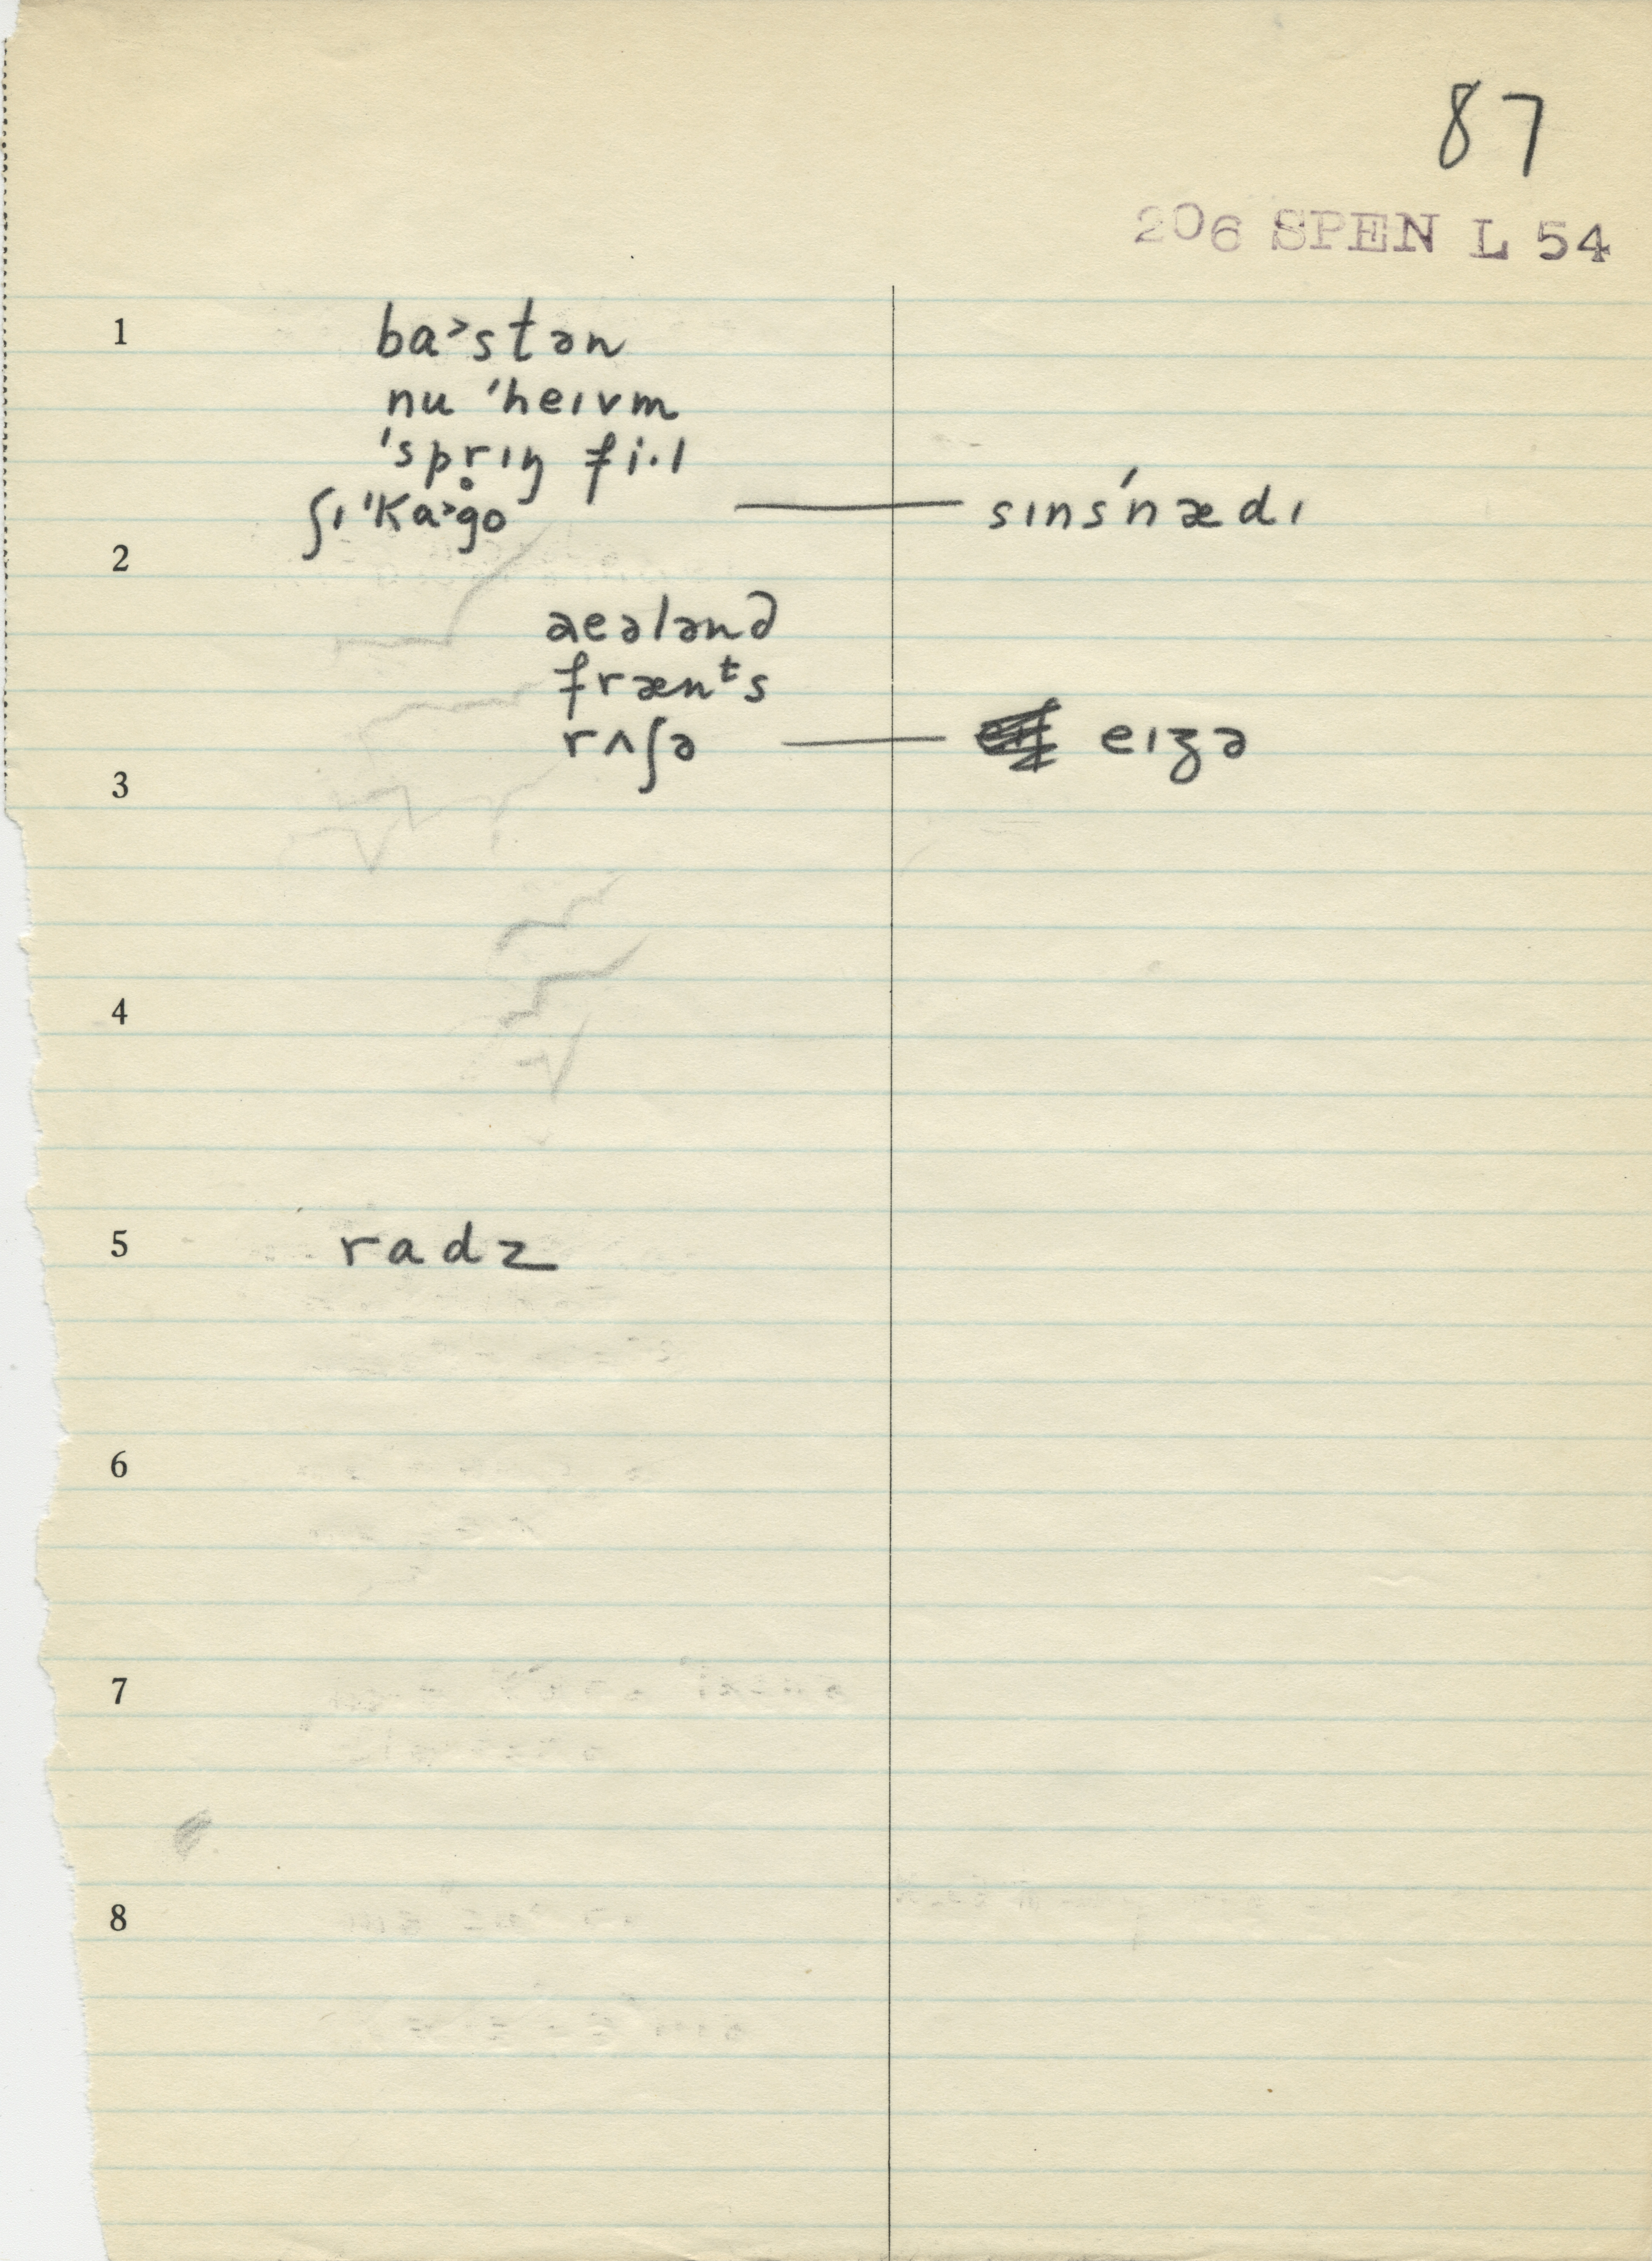 87
206 SPEN L 54
1 ba˃stən
nu ˈheɪvm
ˈspr̥ɪŋ fi·l
ʃɪ ˈka˃go — sɪnsˈnædɪ
2
aeələnd
frænᵗs
3 rʌʃə — eɪʒə
4
5 radz
6
7
8